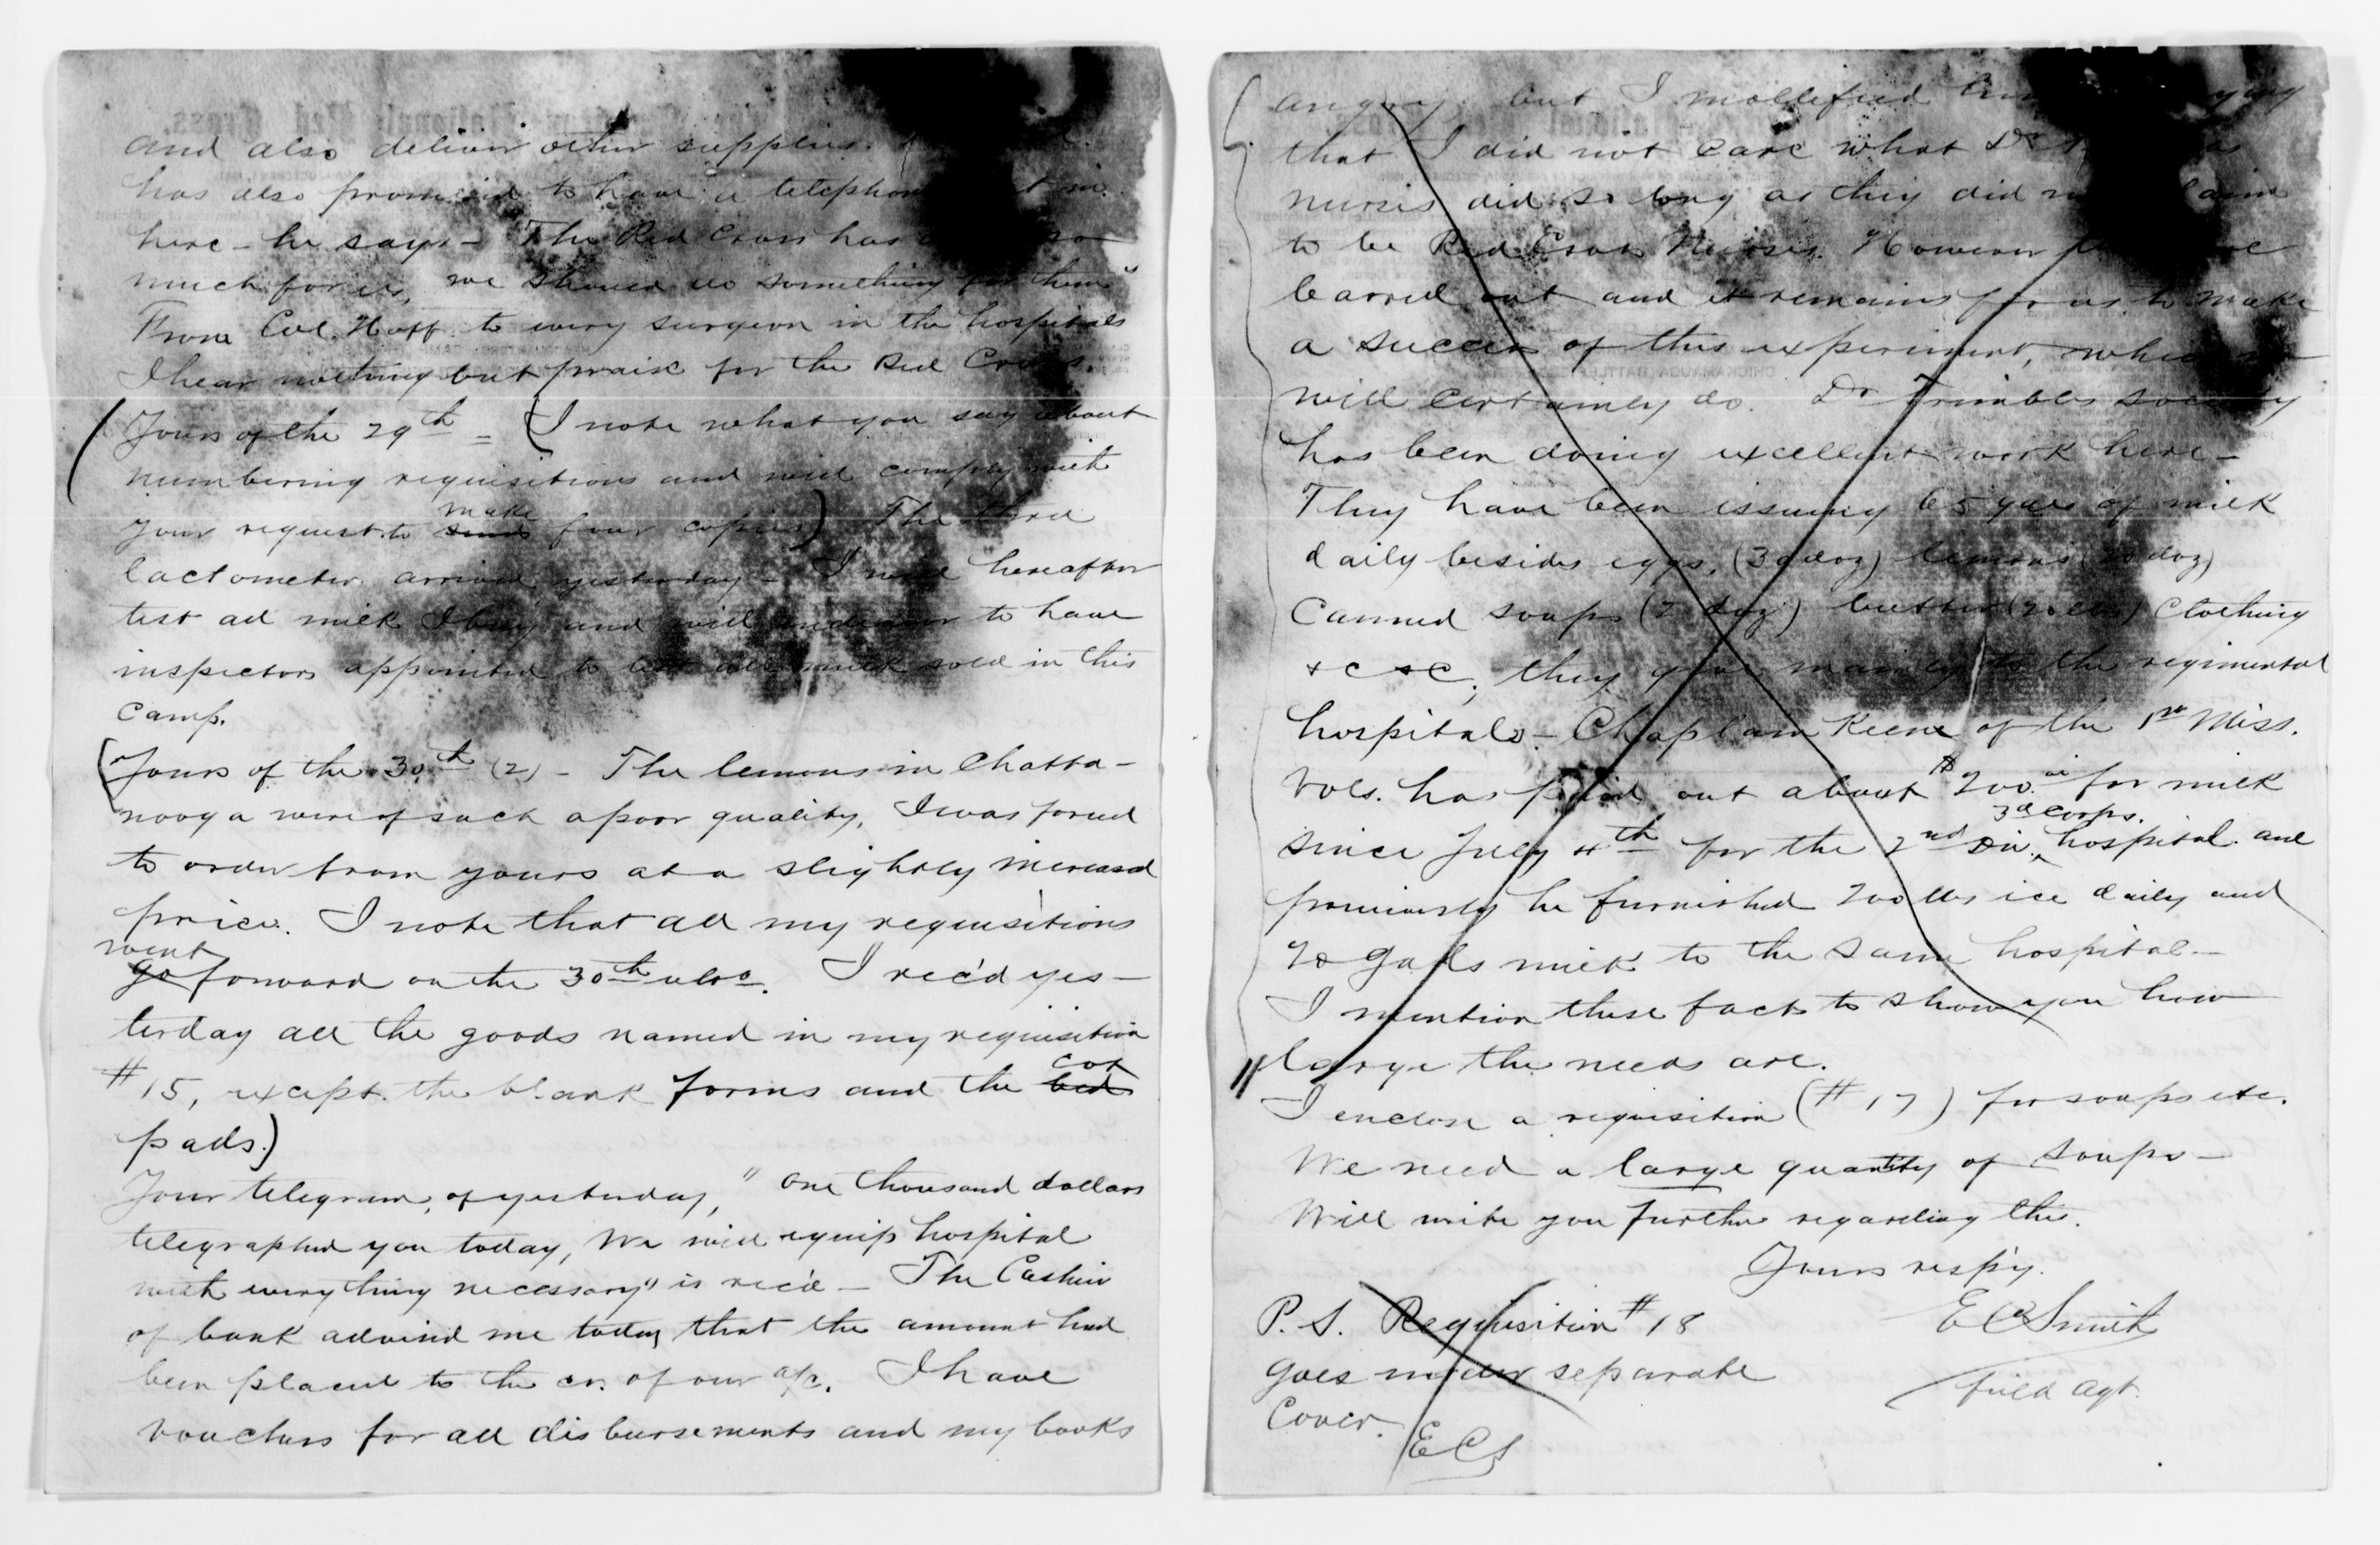 and also deliver other supplies.
has also promised to have a telephone in
here - he says - "The Red Cross has so
much for us, we should do something for them"
From Col. Hoff to every surgeon in the hospitals
I hear nothing but praise for the Red Cross.
(Yours of the 29th = (I note what you say about
numbering requisitions and will comply with
your request to send make four copies) The
lactometer arrived yesterday - I will hereafter
test all milk I buy and will endeavor to have
inspectors appointed to test all milk sold in this
camp.
(Yours of the 30th (2) - The lemons in Chatta-
nooga were of such a poor quality, I was forced
to order from yours at a slightly increased
price. I note that all my requisitions
go went forward on the 30th ulto. I rec'd yes-
terday all the goods named in my requisition
#15, except the blank forms and the bed cot
pads.)
Your telegram, of yesterday, "One thousand dollars
telegraphed you today, We will equip hospital
with everything necessary" is rec'd - The Cashier
of bank advised me today that the amount had
been placed to the cr. of our a/c. I have
vouchers for all disbursements and my books
angry but I mollified
that I did not care what Dr
nurses did so long as they did
to be Red Cross Nurses. However
barred out and it remains for us to make
a success of this experiment,
will certainly do. Dr Trimbles society
has been doing excellent work here -
They have been issuing 65 gals of milk
daily besides eggs, (30 doz) lemons doz)
Canned soups (2 doz) butter (20 lbs) Clothing
&c &c, they give mainly to the regimental
hospitals - Chaplain Keene of the 1st Miss.
Vols. has paid out about $200.00 for milk
since July 4th for the 2nd Div. 3d Corps. hospital and
previously he furnished 200 lbs ice daily and
20 galls milk to the same hospital -
I mention these facts to show you how
large the needs are.
I enclose a requisition (#17) for soups etc.
We need a large quantity of soups -
Will write you further regarding this.
Yours resp'y.
E C Smith
Field Agt.
P. S. Requisition #18
goes under separate
cover.
ECS